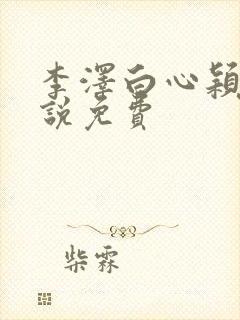 李澤白心穎
說免費
柴霖